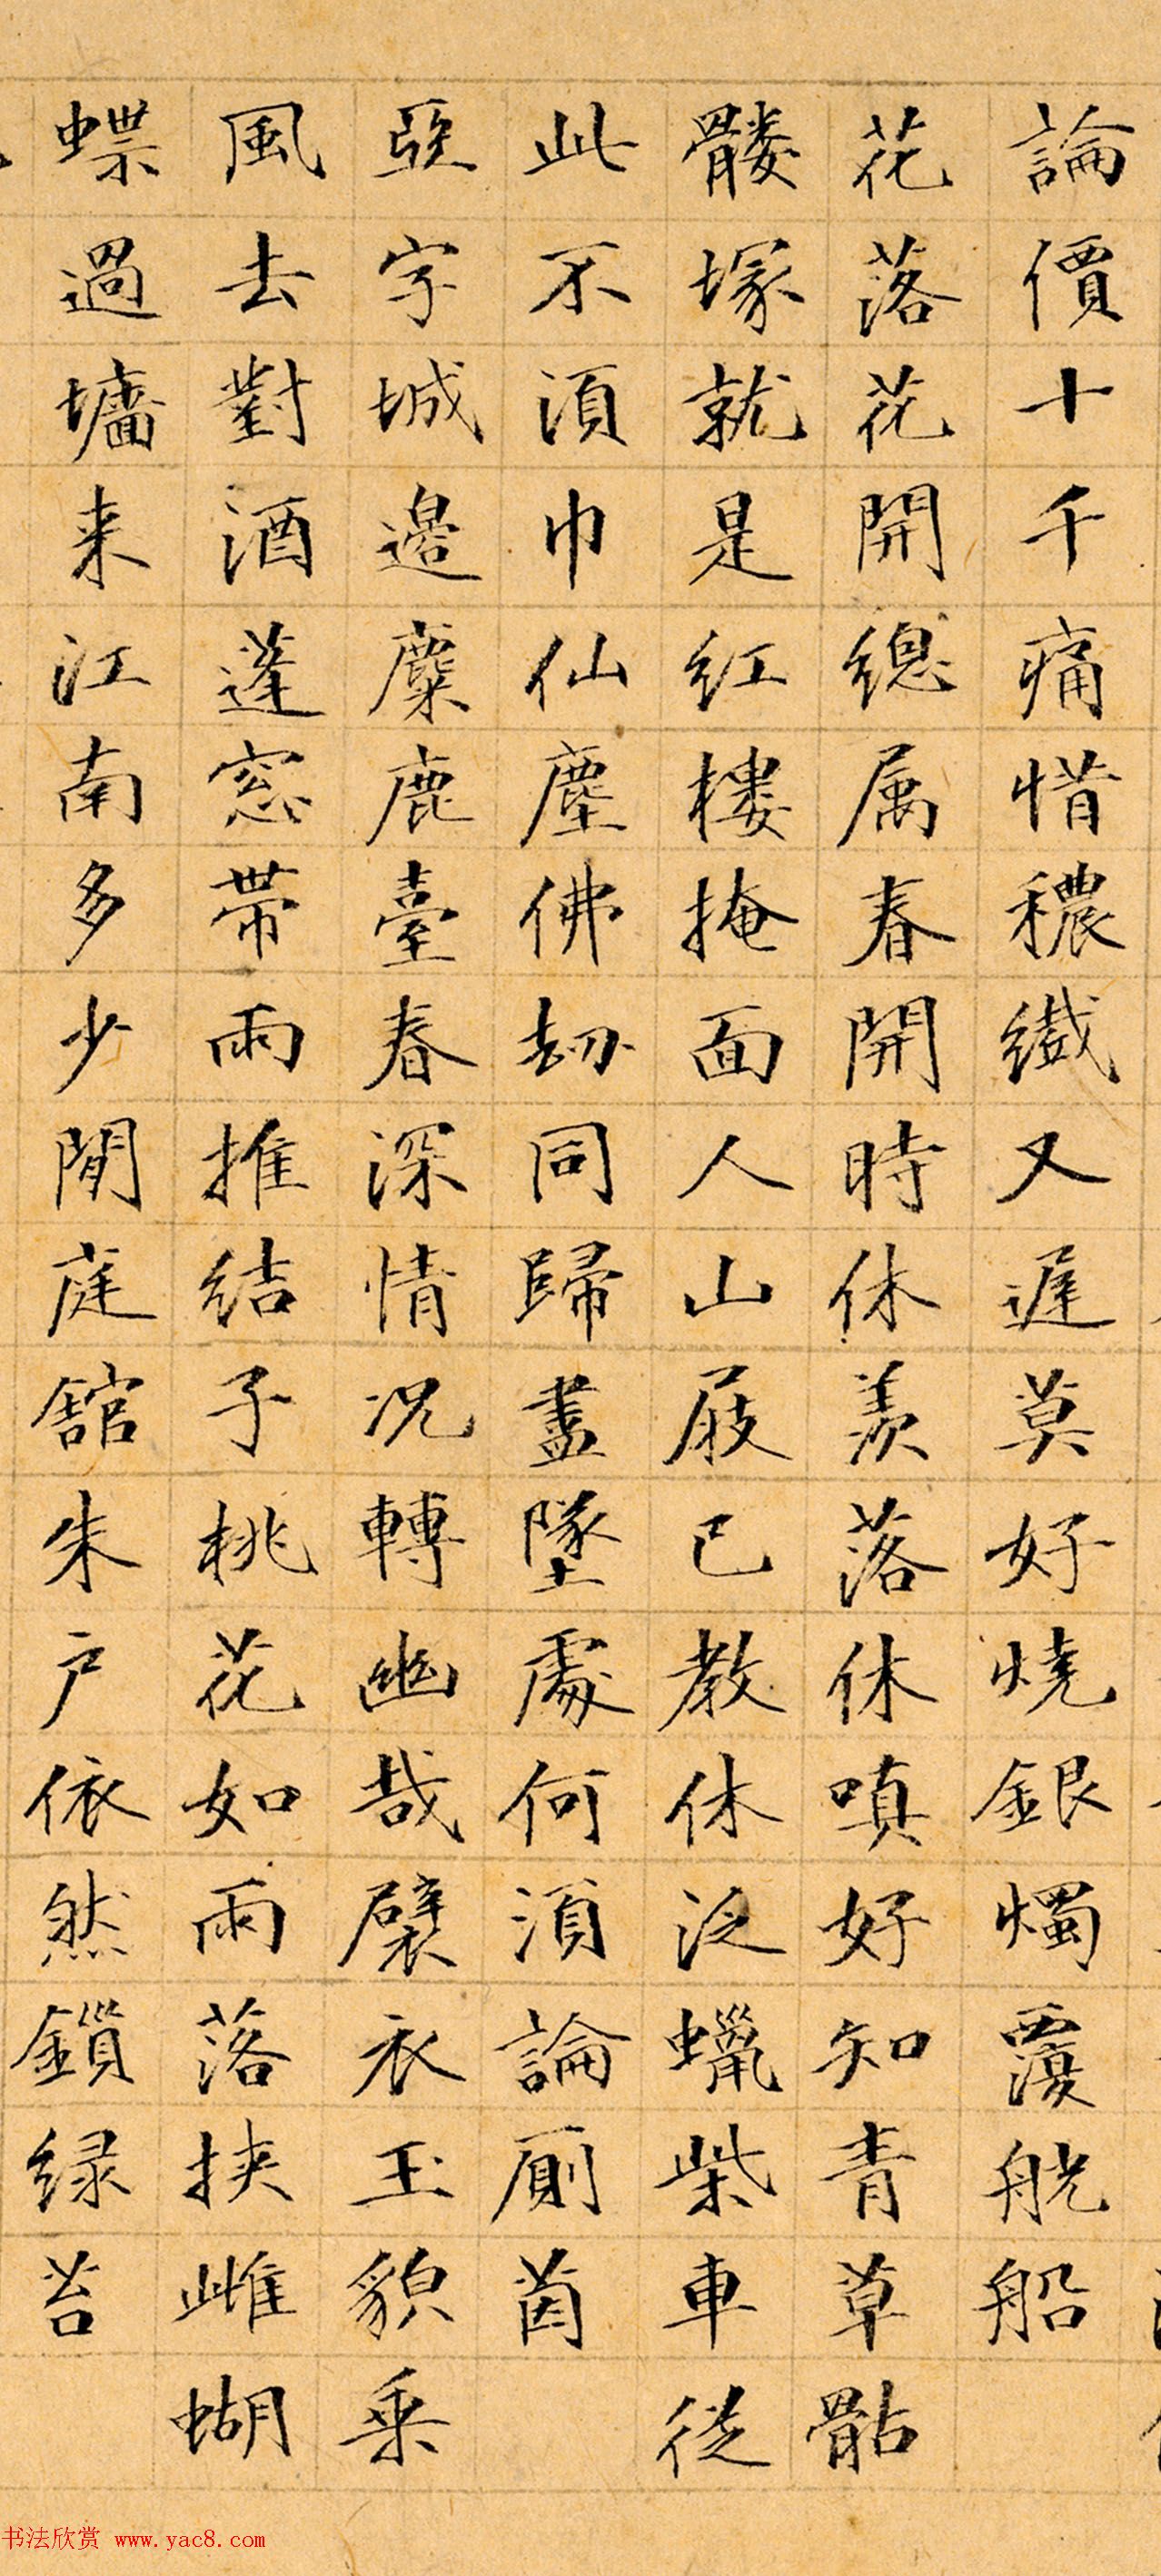 論價十千痛惜穠纖又遲莫好燒銀燭覆觥船
花落花開總属春開時休羨落休嗔好知青草骷
髏塚就是红樓掩面人山屐已教休泛蠟柴車從
此不須巾仙塵佛劫同歸盡墜處何須論厠茵
亞字城邊麋鹿臺春深情況轉幽哉襞衣玉貌乘
風去對酒蓬窓帶雨推結子桃花如雨落挾雌蝴
蝶過墻来江南多少閒庭舘朱户依然鎖緑苔
书法欣赏 www.yac8.com